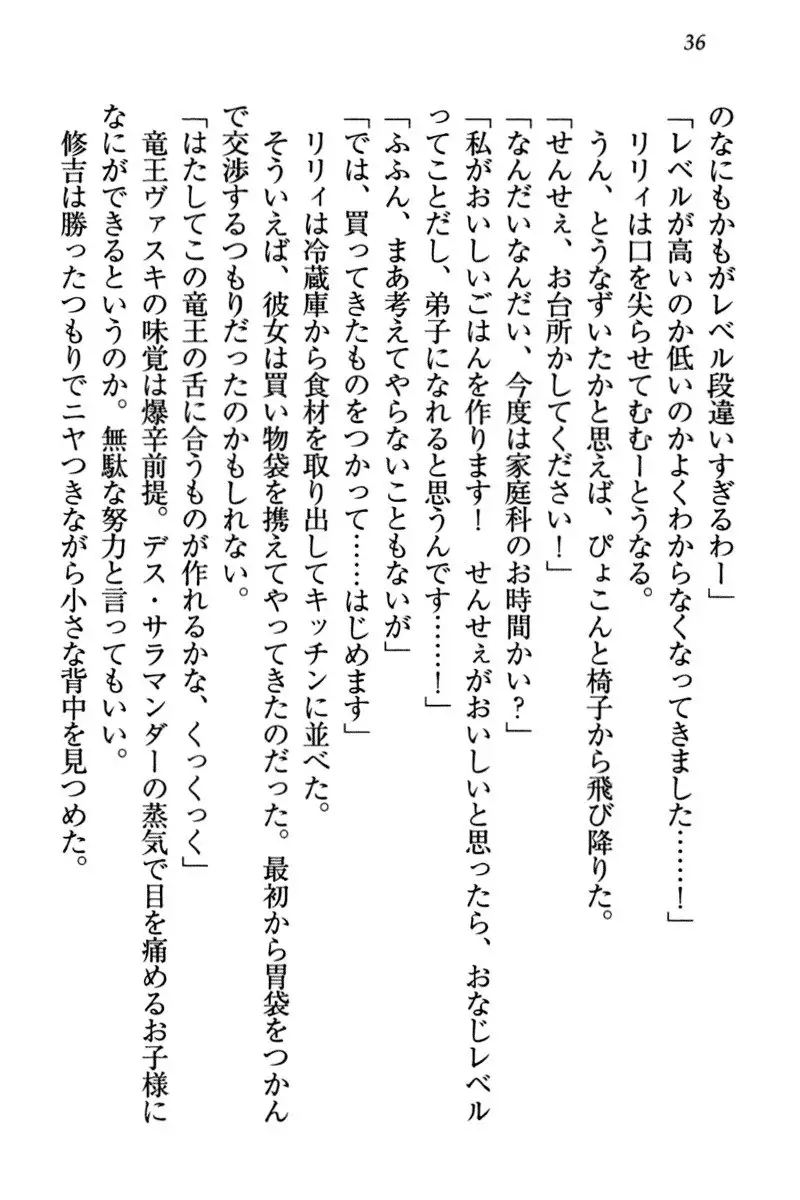 36
のなにもかもがレベル段違いすぎるわー」
「レベルが高いのか低いのかよくわからなくなってきました……！」
リリィは口を尖らせてむむーとうなる。
うん、とうなずいたかと思えば、ぴょこんと椅子から飛び降りた。
「せんせぇ、お台所かしてください！」
「なんだいなんだい、今度は家庭科のお時間かい？」
「私がおいしいごはんを作ります！　せんせぇがおいしいと思ったら、おなじレベル
ってことだし、弟子になれると思うんです……！」
「ふふん、まあ考えてやらないこともないが」
「では、買ってきたものをつかって……はじめます」
リリィは冷蔵庫から食材を取り出してキッチンに並べた。
そういえば、彼女は買い物袋を携えてやってきたのだった。最初から胃袋をつかん
で交渉するつもりだったのかもしれない。
「はたしてこの竜王の舌に合うものが作れるかな、くっくっく」
竜王ヴァスキの味覚は爆辛前提。デス・サラマンダーの蒸気で目を痛めるお子様に
なにができるというのか。無駄な努力と言ってもいい。
修吉は勝ったつもりでニヤつきながら小さな背中を見つめた。